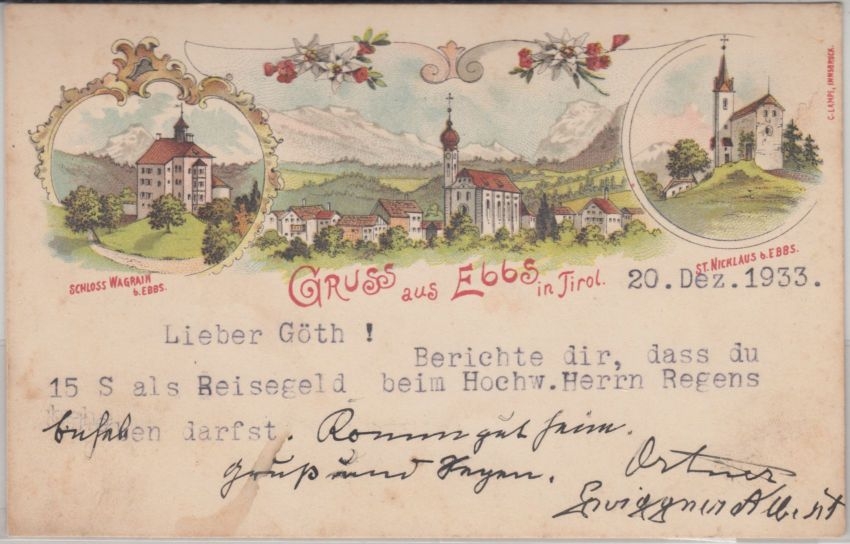 SCHLOSS WAGRAIN
b. EBBS.
GRUSS aus EBBS in Tirol.
ST. NICKLAUS b. EBBS.
C. LAMPE, INNSBRUCK.
20. Dez. 1933.
Lieber Göth !
Berichte dir, dass du
15 S als Reisegeld beim Hochw. Herrn Regens
beheben darfst. Komm gut heim.
Gruß und Segen. Ortner
Albert